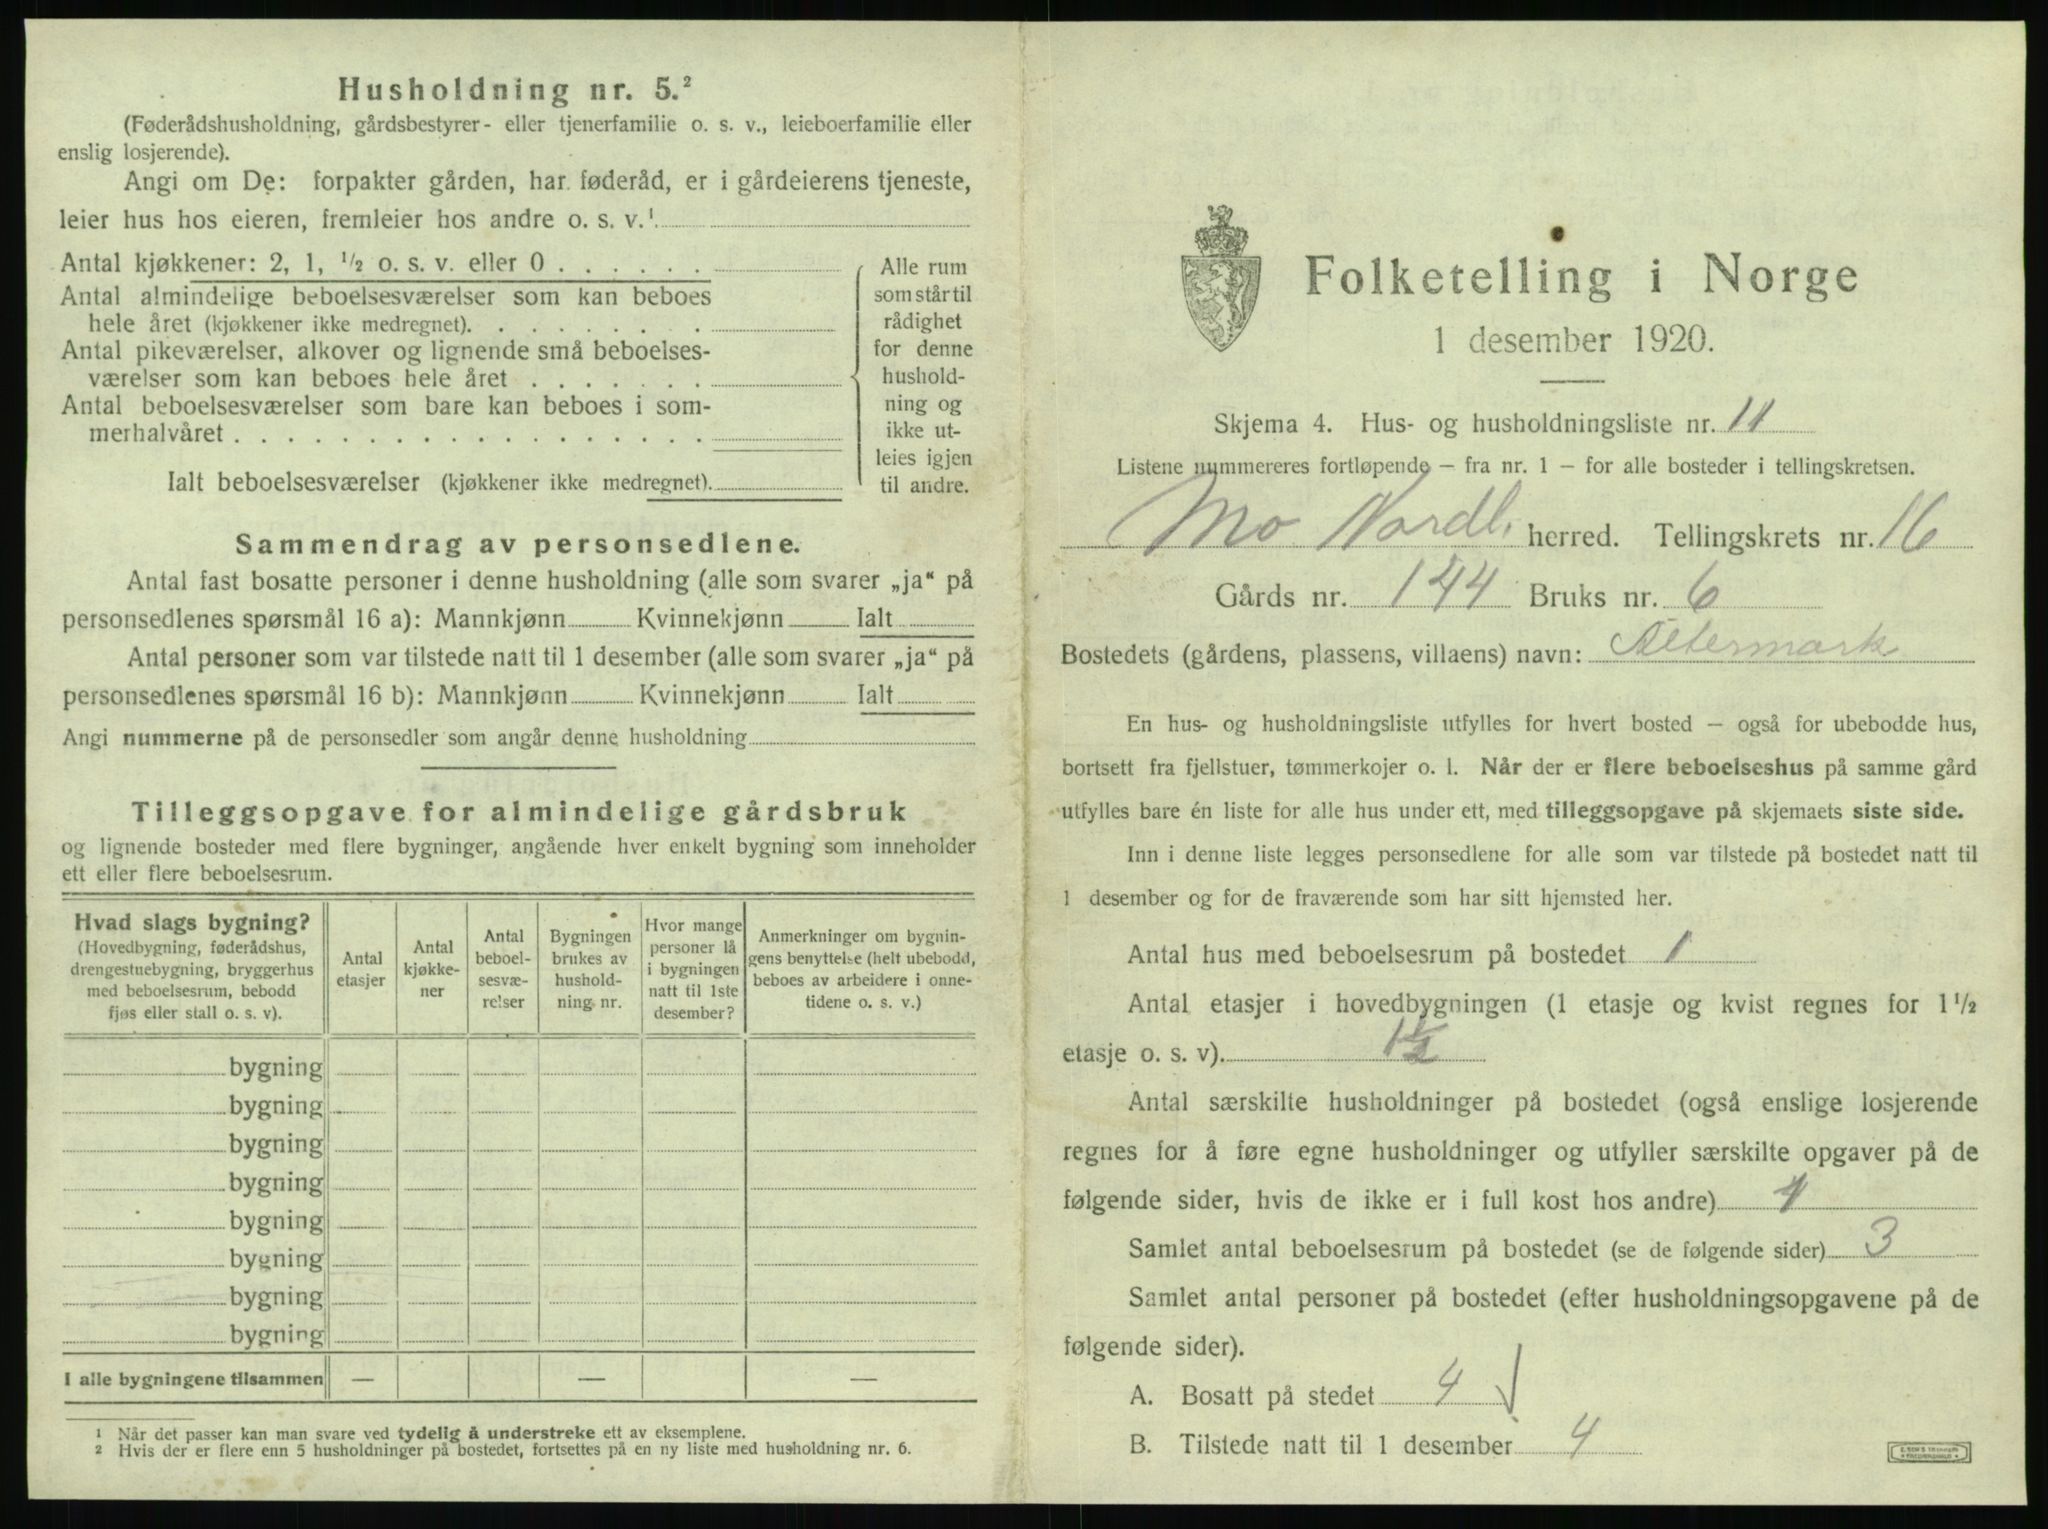 Husholdning nr. 5.²
(Føderådshusholdning, gårdsbestyrer- eller tjenerfamilie o. s. v., leieboerfamilie eller
enslig losjerende).
Angi om De: forpakter gården, har føderåd, er i gårdeierens tjeneste,
leier hus hos eieren, fremleier hos andre o. s. v.¹
Antal kjøkkener: 2, 1, ½ o. s. v. eller 0 . . . . . .
Antal almindelige beboelsesværelser som kan beboes
hele året (kjøkkener ikke medregnet). . . . . . . . .
Antal pikeværelser, alkover og lignende små beboelses-
værelser som kan beboes hele året . . . . . . .
Antal beboelsesværelser som bare kan beboes i som-
merhalvåret . . . . . . . . . . . . . . . . . .
Ialt beboelsesværelser (kjøkkener ikke medregnet).
Alle rum
som står til
rådighet
for denne
hushold-
ning og
ikke ut-
leies igjen
til andre.
Sammendrag av personsedlene.
Antal fast bosatte personer i denne husholdning (alle som svarer „ja“ på
personsedlenes spørsmål 16 a): Mannkjønn Kvinnekjønn Ialt
Antal personer som var tilstede natt til 1 desember (alle som svarer „ja“ på
personsedlenes spørsmål 16 b): Mannkjønn Kvinnekjønn Ialt
Angi nummerne på de personsedler som angår denne husholdning
Tilleggsopgave for almindelige gårdsbruk
og lignende bosteder med flere bygninger, angående hver enkelt bygning som inneholder
ett eller flere beboelsesrum.
Hvad slags bygning?
(Hovedbygning, føderådshus,
drengestuebygning, bryggerhus
med beboelsesrum, bebodd
fjøs eller stall o. s. v).
Antal
etasjer
Antal
kjøkke-
ner
Antal
beboel-
sesvæ-
relser
Bygningen
brukes av
hushold-
ning nr.
Hvor mange
personer lå
i bygningen
natt til 1ste
desember?
Anmerkninger om bygnin-
gens benyttelse (helt ubebodd,
beboes av arbeidere i onne-
tidene o. s. v.)
bygning
bygning
bygning
bygning
bygning
bygning
bygning
bygning
I alle bygningene tilsammen — — —
1 Når det passer kan man svare ved tydelig å understreke ett av eksemplene.
2 Hvis der er flere enn 5 husholdninger på bostedet, fortsettes på en ny liste med husholdning nr. 6.
Folketelling i Norge
1 desember 1920.
Skjema 4. Hus- og husholdningsliste nr. 11
Listene nummereres fortløpende – fra nr. 1 – for alle bosteder i tellingskretsen.
Mo Nordl. herred. Tellingskrets nr. 16
Gårds nr. 144 Bruks nr. 6
Bostedets (gårdens, plassens, villaens) navn: Altermark
En hus- og husholdningsliste utfylles for hvert bosted – også for ubebodde hus,
bortsett fra fjellstuer, tømmerkojer o. l. Når der er flere beboelseshus på samme gård
utfylles bare én liste for alle hus under ett, med tilleggsopgave på skjemaets siste side.
Inn i denne liste legges personsedlene for alle som var tilstede på bostedet natt til
1 desember og for de fraværende som har sitt hjemsted her.
Antal hus med beboelsesrum på bostedet 1
Antal etasjer i hovedbygningen (1 etasje og kvist regnes for 1 ½
etasje o. s. v). 1½
Antal særskilte husholdninger på bostedet (også enslige losjerende
regnes for å føre egne husholdninger og utfyller særskilte opgaver på de
følgende sider, hvis de ikke er i full kost hos andre) 1
Samlet antal beboelsesrum på bostedet (se de følgende sider) 3
Samlet antal personer på bostedet (efter husholdningsopgavene på de
følgende sider).
A. Bosatt på stedet 4
B. Tilstede natt til 1 desember 4